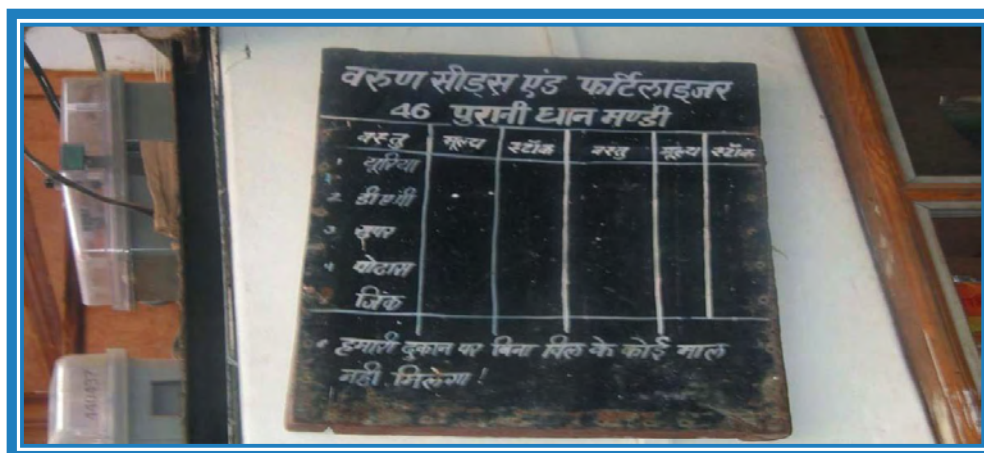 वरुण सीड्स एंड फर्टिलाइजर
46 पुरानी धान मण्डी
वस्तु मूल्य स्टॉक वस्तु मूल्य स्टॉक
1 यूरिया
2 डीएपी
3 सुपर
4 पोटास
जिंक
हमारी दुकान पर बिना बिल के कोई माल
नही मिलेगा!
440437